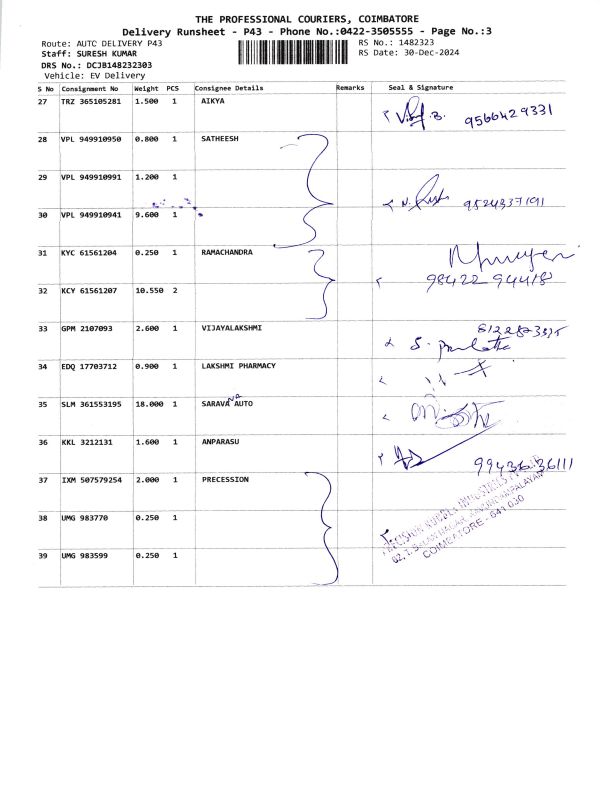 THE PROFESSIONAL COURIERS, COIMBATORE
Delivery Runsheet - P43 - Phone No.:0422-3505555 - Page No.:3
Route: AUTO DELIVERY P43 RS No.: 1482323
Staff: SURESH KUMAR RS Date: 30-Dec-2024
DRS No.: DCJB148232303
Vehicle: EV Delivery
S No Consignment No Weight PCS Consignee Details Remarks Seal & Signature
27 TRZ 365105281 1.500 1 AIKYA
9566429331
28 VPL 949910950 0.800 1 SATHEESH
29 VPL 949910991 1.200 1
9524337191
30 VPL 949910941 9.600 1
31 KYC 61561204 0.250 1 RAMACHANDRA
98422 94418
32 KCY 61561207 10.550 2
33 GPM 2107093 2.600 1 VIJAYALAKSHMI
34 EDQ 17703712 0.900 1 LAKSHMI PHARMACY
35 SLM 361553195 18.000 1 SARAVA NA AUTO
36 KKL 3212131 1.600 1 ANPARASU
99436 36111
37 IXM 507579254 2.000 1 PRECESSION
38 UMG 983770 0.250 1
COIMBATORE - 641 030
39 UMG 983599 0.250 1